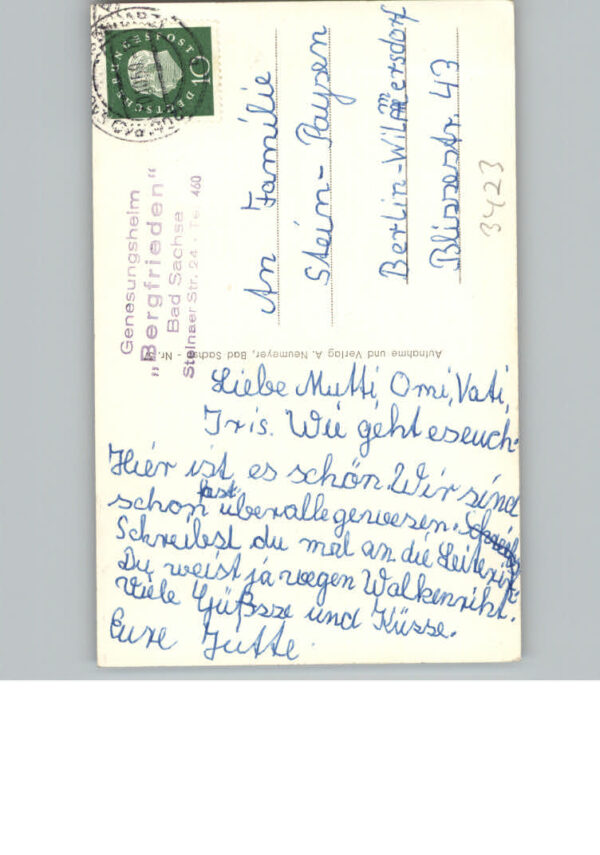 DEUTSCHE BUNDESPOST
10
Genesungsheim
„Bergfrieden"
Bad Sachsa
Steinaer Str. 24 · Te 460
An Familie
Stein-Paysen
Berlin-Wilmersdorf
Blissestr. 43
3423
Aufnahme und Verlag A. Neumeyer, Bad Sachsa - Nr.
Liebe Mutti, Omi, Vati,
Iris. Wie geht es euch.
Hier ist es schön. Wir sind
schon fast überalle gewesen.
Schreibst du mal an die Leiterin.
Du weist ja wegen Walkenriht.
Viele Güßsze und Küsse.
Eure Jutte.